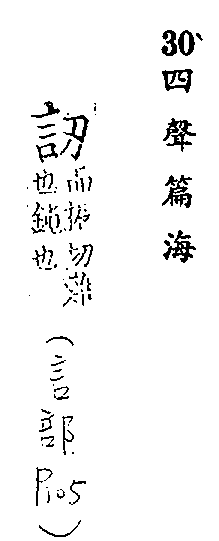 30、四聲篇海
訒
而振切難
也鈍也
（言部P105）